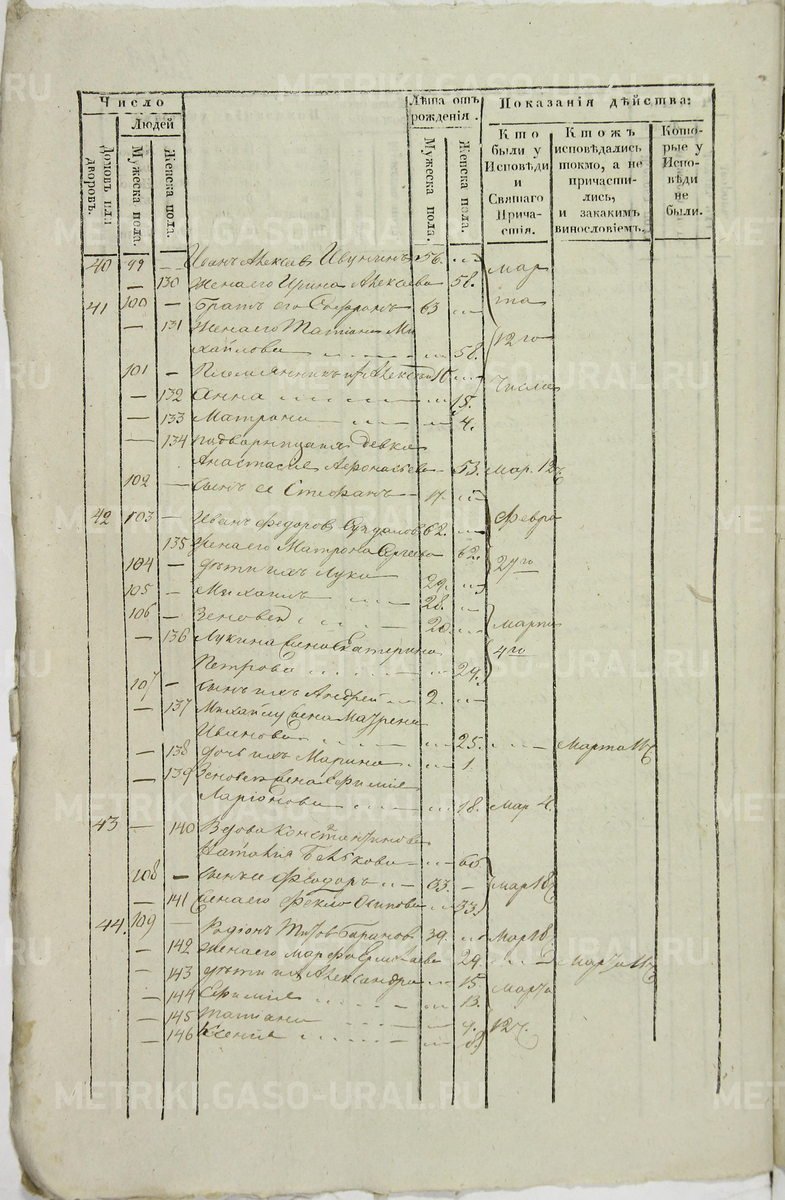 Число
Людей
Домовъ или дворовъ.
Мужеска пола.
Женска пола.
Лѣта отъ рожденія.
Мужеска пола.
Женска пола.
Показанія дѣйства:
Кто были у Исповѣди и Святаго Причастія.
Ктожъ исповѣдались токмо, а не причастились, и закакимъ винословіемъ.
Которые у Исповѣди не были.
40 99 — Иванъ Алексѣев 56. Мар
— 130 Жена его Ирина Алексѣева 58.
41 100 — Братъ его 63 та
— 131 Жена его Татіана Ми
хайлова 58. 12 го
101 — Племянникъ их Алексѣй 16 числа
— 132 Анна 15.
— 133 Матрона 4.
— 134 подворница девка
Анастасія 53. Мар. 12
102 — Сынъ ея Стефанъ 17.
42 103 — Иванъ Федоров Суздалов 62. Февра
135 Жена его Матрона Сергеева 62.
104 — дѣти ихъ Лука 29. 27го
105 — Михаилъ 28.
106 — Зеновей 20. Марта
— 136 Лукина жена Екатерина 4го
Петрова 29.
107 — Сынъ ихъ Андрей 2.
— 137 Михайлу жена Мавра
Иванова 25. Марта
— 138 дочь ихъ Марина 1
— 139 Зеновея жена Ефимія
Ларіонова 18. Мар 4.
43 — 140 Вдова Константинова
Наталія Бѣлкова 66
108 — Сынъ ея Феодоръ 33. Мар 18
— 141 Жена его Фекла Осипова 33.
44. 109 — Родіонъ Титов Баранов 39. Мар 18
— 142 Жена его Марфа 29 Марта
— 143 дѣти их Александра 15 Марта
— 144 Ефимія 13.
— 145 Татіана 12ч.
— 146 Ксенія
METRIKI.GASO-URAL.RU